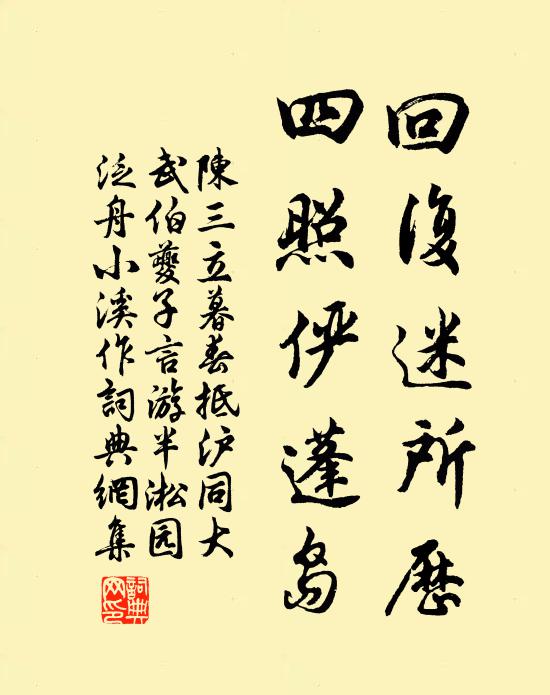 回復迷所歷
四照伊蓬島
陳三立暮春抵沪同大
武伯夔子言游半淞园
泛舟小溪作詞典網集
詞典